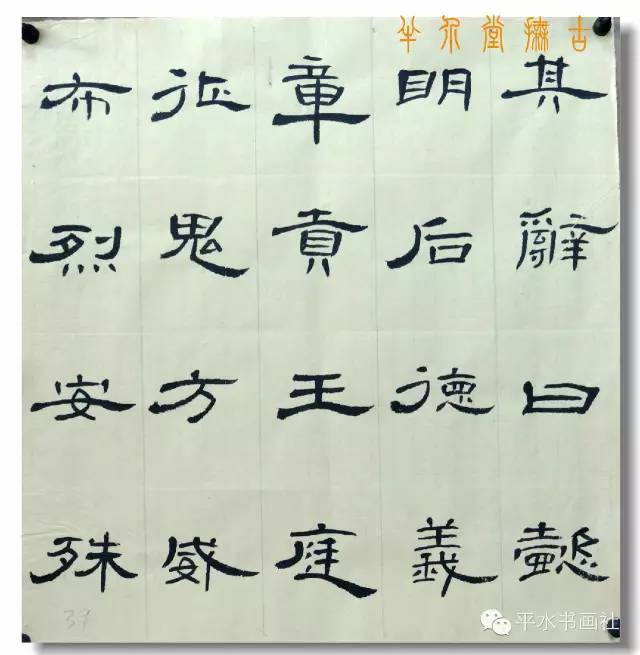 半 堂 古
其辭曰懿
明后德義
章貢王庭
征鬼方威
布烈安殊
39
平水书画社